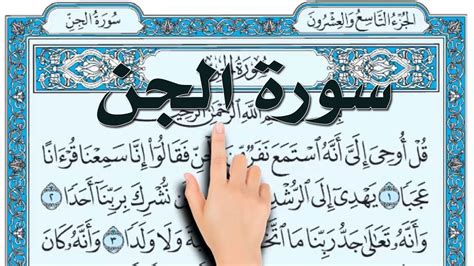 الجُزْءُ التَّاسِعُ وَالعِشْرُونَ
سُورَةُ الجِنِّ
سورة الجن
اللَّهِ الرَّحْمَٰنِ الرَّحِيمِ
قُلْ أُوحِىَ إِلَىَّ أَنَّهُ ٱسْتَمَعَ نَفَرٌ فَقَالُوٓا۟ إِنَّا سَمِعْنَا قُرْءَانًا
عَجَبًا ١ يَهْدِىٓ إِلَى ٱلرُّشْدِ نُّشْرِكَ بِرَبِّنَآ أَحَدًا ٢
وَأَنَّهُۥ تَعَٰلَىٰ جَدُّ رَبِّنَا مَا وَلَا وَلَدًا ٣ وَأَنَّهُۥ كَانَ